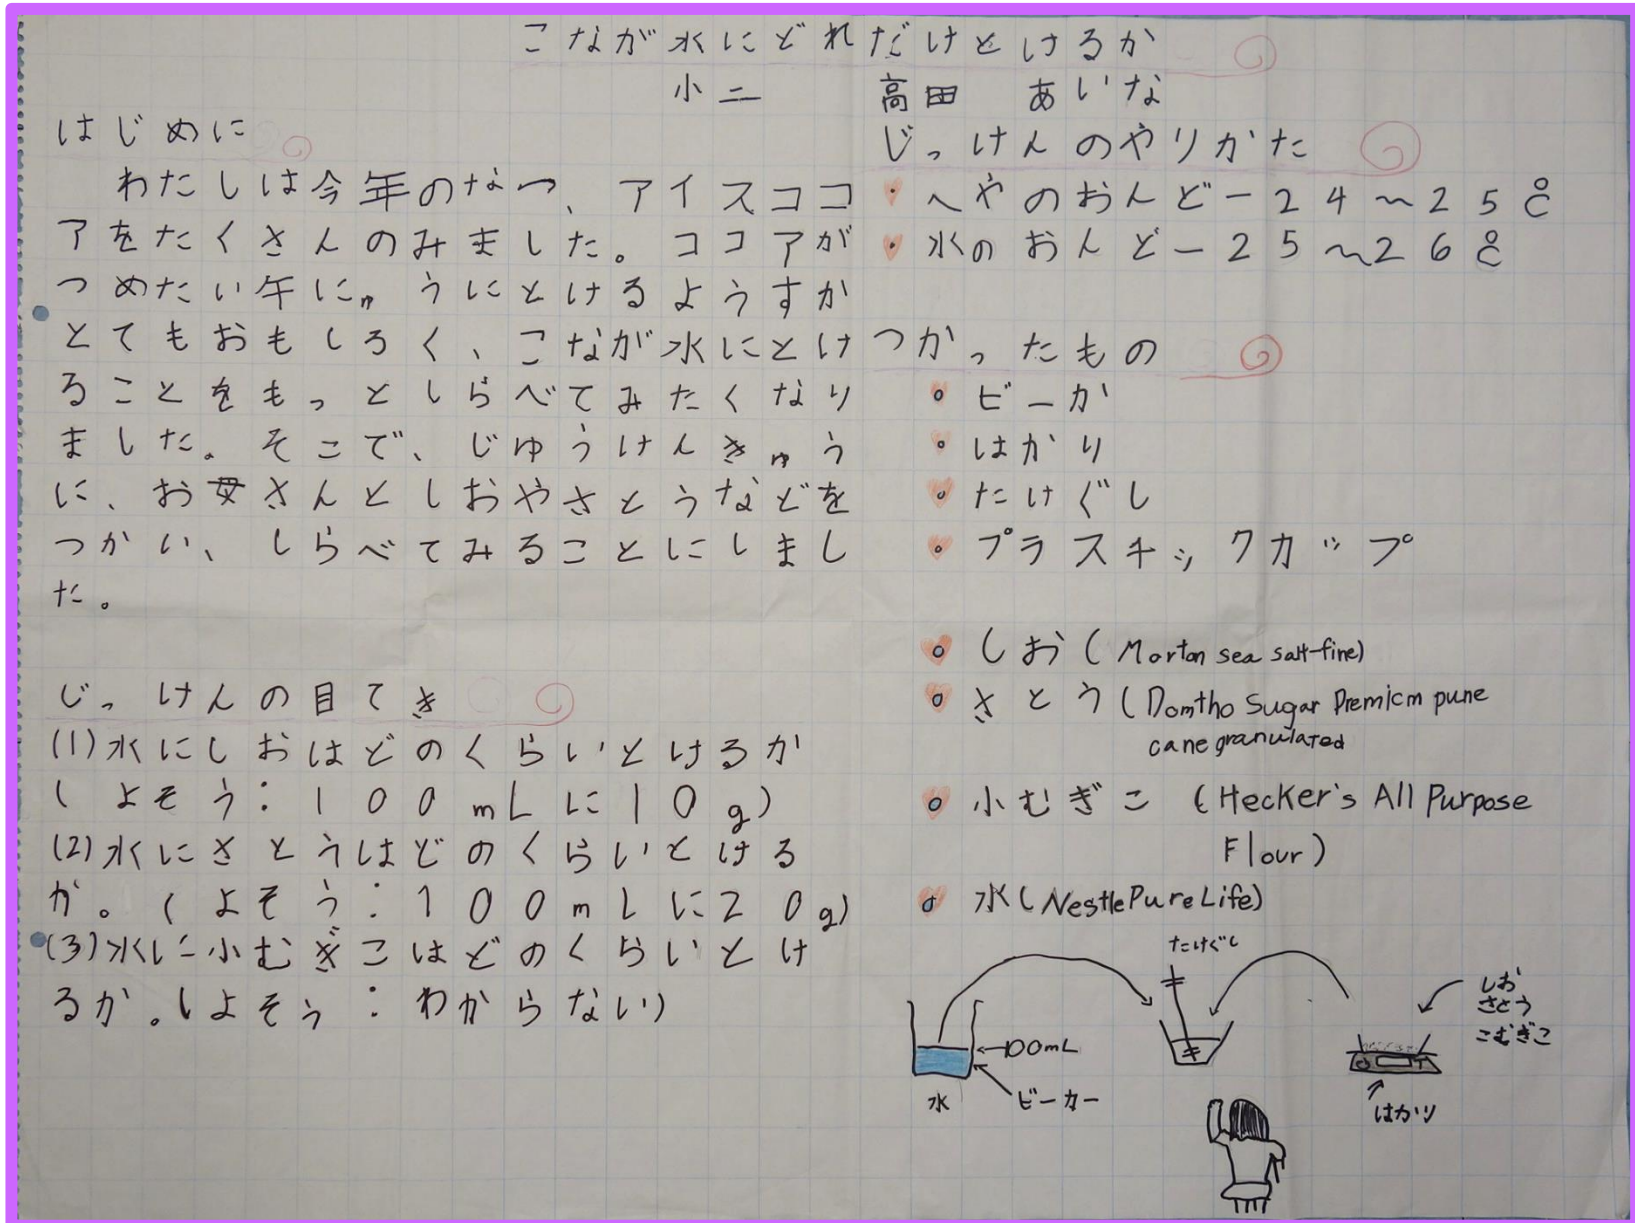 こなが水にどれだけとけるか
小二 高田 あいな
はじめに
わたしは今年のなつ、アイスココ
アをたくさんのみました。ココアが
つめたい午にゅうにとけるようすか
とてもおもしろく、こなが水にとけ
ることをもっとしらべてみたくなり
ました。そこで、じゆうけんきゅう
に、お母さんとしおやさとうなどを
つかい、しらべてみることにしまし
た。
じっけんの目てき
(1)水にしおはどのくらいとけるか
(よそう:100mLに10g)
(2)水にさとうはどのくらいとける
か。(よそう:100mLに20g)
(3)水に小むぎこはどのくらいとけ
るか。(よそう:わからない)
じっけんのやりかた
・へやのおんどー24〜25℃
・水のおんどー25〜26℃
つかったもの
ビーか
はかり
たけぐし
プラスチックカップ
しお(Morton sea salt-fine)
さとう(Domtho Sugar Premicm pune
cane granulated
小むぎこ (Hecker's All Purpose
Flour)
水(Nestle Pure Life)
たけぐし
しお
さとう
こむぎこ
100mL
ビーカー
水
はかり